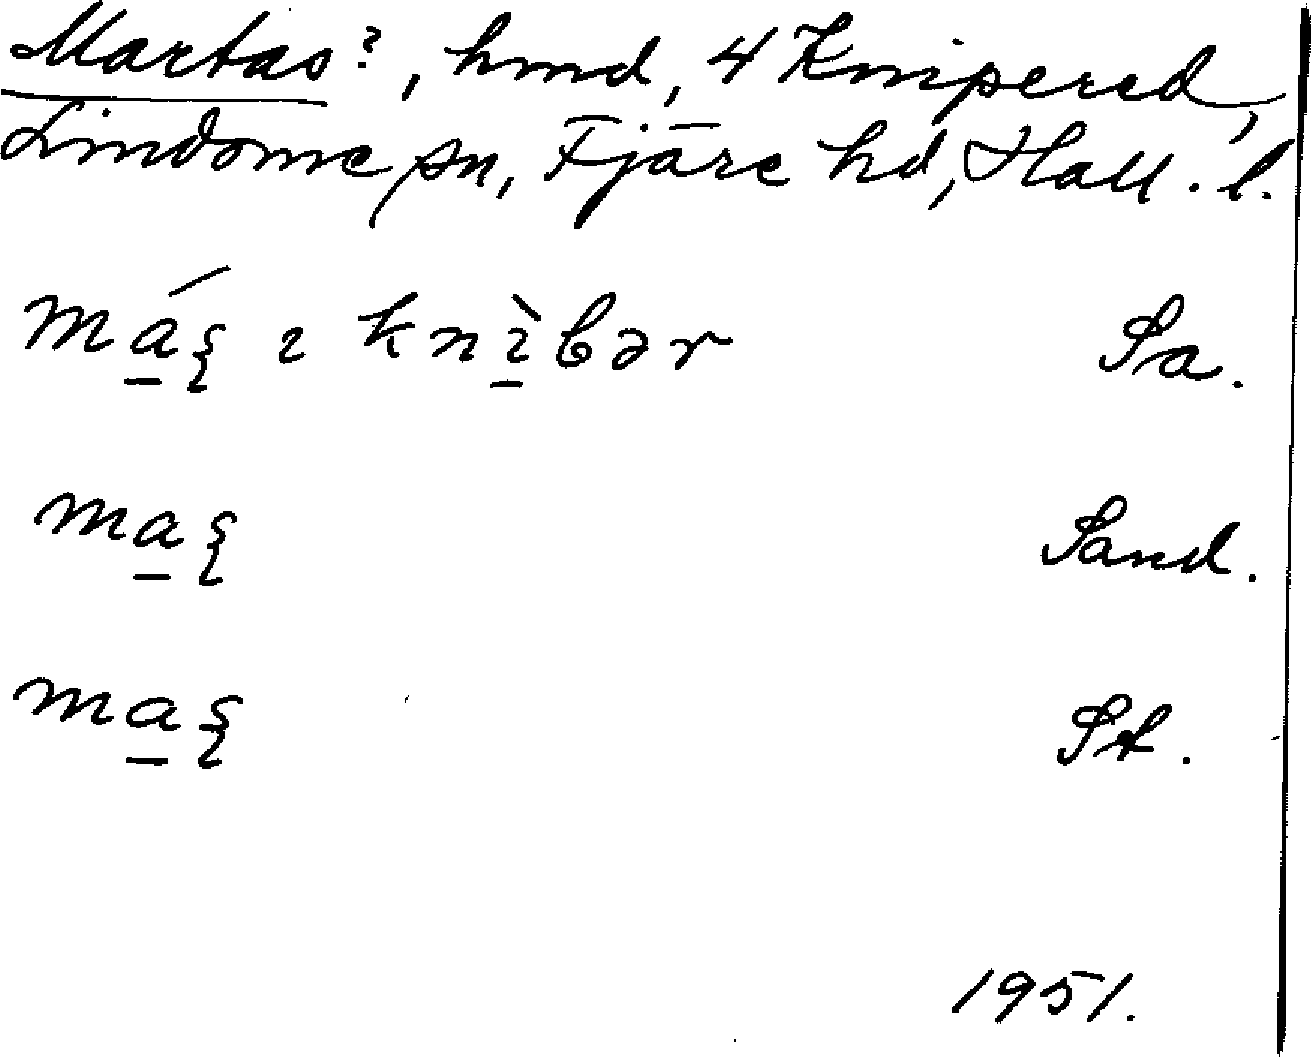 Martas?, hmd, 4 Knipered,
Lindome sn, Fjäre hd, Hall. l.
má̱ʂ ɩ knɩ̱̀bər Sa.
ma̱ʂ Sand.
ma̱ʂ St.
1951.